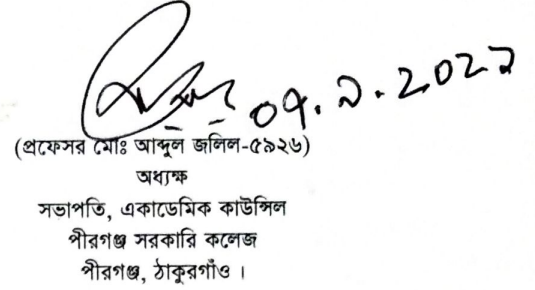 ০৭.৯.২০২১
(প্রফেসর মোঃ আব্দুল জলিল-৫৯২৬)
অধ্যক্ষ
সভাপতি, একাডেমিক কাউন্সিল
পীরগঞ্জ সরকারি কলেজ
পীরগঞ্জ, ঠাকুরগাঁও ।